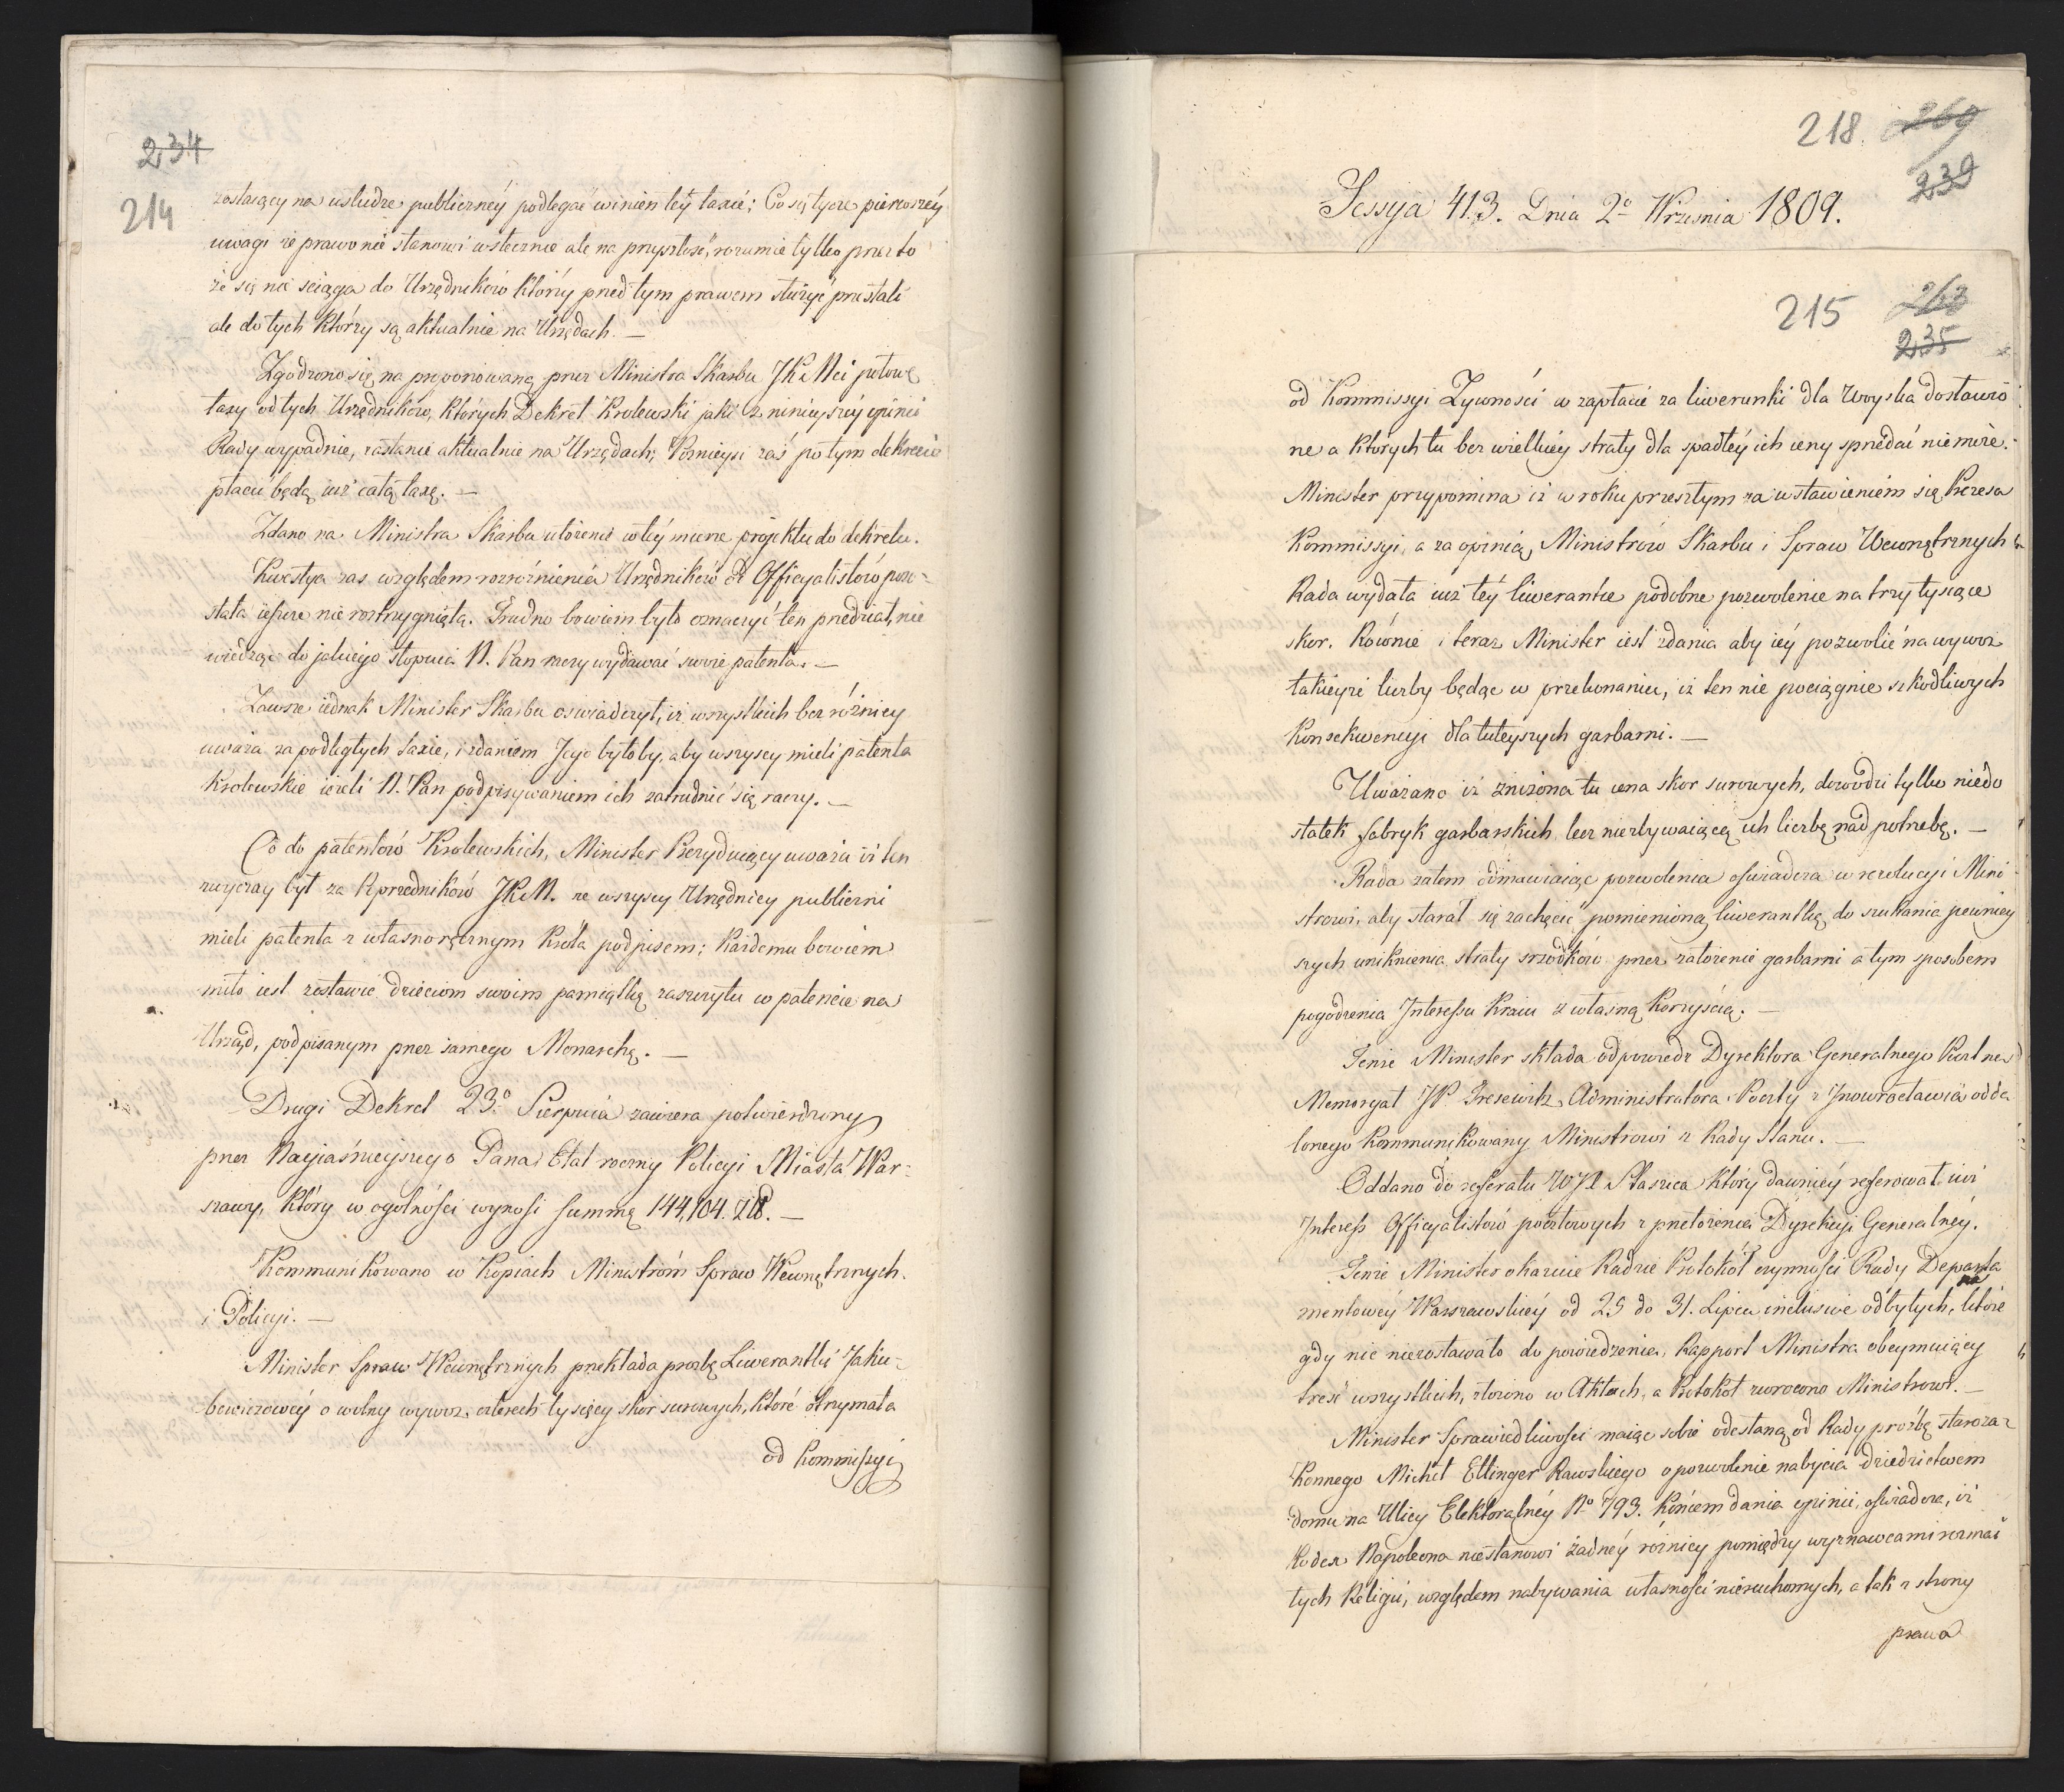 234
214
zostaiący na usłudze publiczney podlegać winien tey taxie; Co się tycze pierwszey
uwagi że prawo nie stanowi wstecznie ale na przyszłość, rozumie tylko przez to
że się nie sciąga do Urzędników którzy przed tym prawem służyć przestali
ale do tych którzy są aktualnie na Urzędach. —
Zgodzono się na proponowaną przez Ministra Skarbu JKMci połowę
taxy od tych Urzędników, których Dekret Krolewski jaki z ninieyszey opinii
Rady wypadnie, zastanie aktualnie na Urzędach; Poznieysi zaś po tym dekrecie
płacić będą iuż całą taxę. —
Zdano na Ministra Skarbu ułożenie w tey mierze projektu do dekretu.
Kwestya zas względem rozróżnienia Urzędników od Officyalistów pozo-
stała ieszcze nie rostrzygnięta. Trudno bowiem było oznaczyć ten przedział, nie
wiedząc do jakiego stopnia N. Pan raczy wydawać swoie patenta. —
Zawsze iednak Minister Skarbu oswiadczył, iż wszystkich bez różnicy
uważa za podległych taxie, i zdaniem Jego byłoby, aby wszyscy mieli patenta
Krolewskie ieżeli N. Pan podpisywaniem ich zatrudnić się raczy. —
Co do patentów Krolewskich, Minister Prezyduiący uważa iż ten
zwyczay był za Poprzedników JKM. że wszyscy Urzędnicy publiczni
mieli patenta z własnoręcznym Króla podpisem; Każdemu bowiem
miło iest zostawić dzieciom swoim pamiątkę zaszczytu w patencie na
Urząd, podpisanym przez samego Monarchę. —
Drugi Dekret 23º Sierpnia zawiera potwierdzony
przez Nayiaśnieyszego Pana Etat roczny Policyi Miasta War-
szawy, który w ogólności wynosi summę 144,104. Złł. —
Kommunikowano w Kopiach Ministróm Spraw Wewnętrznych
i Policyi. —
Minister Spraw Wewnętrznych przekłada prozbę Liwerantki Jaku-
bowiczowey o wolny wywoz czterech tysięcy skor surowych, które otrzymała
od Kommissyi
218 260
239
Sessya 413. Dnia 2º Wrzesnia 1809.
215 263
235
od Kommissyi Zywności w zapłacie za liwerunki dla Woyska dostawio
ne a których tu bez wielkiey straty dla spadłey ich ceny sprzedać nie może.
Minister przypomina iż w roku przeszłym za wstawieniem się Prezesa
Kommissyi, a za opinią Ministrów Skarbu i Spraw Wewnętrznych
Rada wydała iuż tey liwerantce podobne pozwolenie na trzy tysiące
skor. Rownie i teraz Minister iest zdania aby iey pozwolić na wywoz
takieyże liczby będąc w przekonaniu, iż ten nie pociągnie szkodliwych
Konsekwencyi dla tuteyszych garbarni. —
Uważano iż zniżona tu cena skor surowych, dowodzi tylko niedo
statek fabryk garbarskich lecz niezbywaiącą ich liczbę nad potrzebę. —
Rada zatem odmawiaiąc pozwolenia oświadcza w rezolucyi Mini
strowi, aby starał się zachęcić pomienioną liwerantkę do szukania pewniey
szych uniknienia straty srzodków przez założenie garbarni a tym sposobem
pogodzenia Interessu Kraiu z własną Korzyścią. —
Tenże Minister składa odpowiedź Dyrektora Generalnego Poczt na
Memoryał JP Tresewitz Administratora Poczty z Inowrocławia odda
lonego Kommunikowany Ministrowi z Rady Stanu. —
Oddano do referatu WJX Staszica który dawniey referował iuż
Interess Officyalistów pocztowych z przełożenia Dyrekcyi Generalney.
Tenże Minister okazuie Radzie Protokół czynności Rady Departa
mentowey Warszawskiey od 25 do 31. Lipca inclusive odbytych, które
gdy nic niezostawało do powiedzenia, Rapport Ministra obeymuiący
tresć wszystkich, złożono w Aktach, a Protokoł zwrocono Ministrowi. —
Minister Sprawiedliwości maiąc sobie odesłaną od Rady prożbę staroza-
Konnego Michel Ettinger Rawskiego o pozwolenie nabycia dziedzictwem
domu na Ulicy Elektoralney Nº 793. Końcem dania opinii, oświadcza, iż
Kodex Napoleona niestanowi żadney róznicy pomiędzy wyznawcami rozmai
tych Religii, względem nabywania własności nieruchomych, a tak z strony
prawa